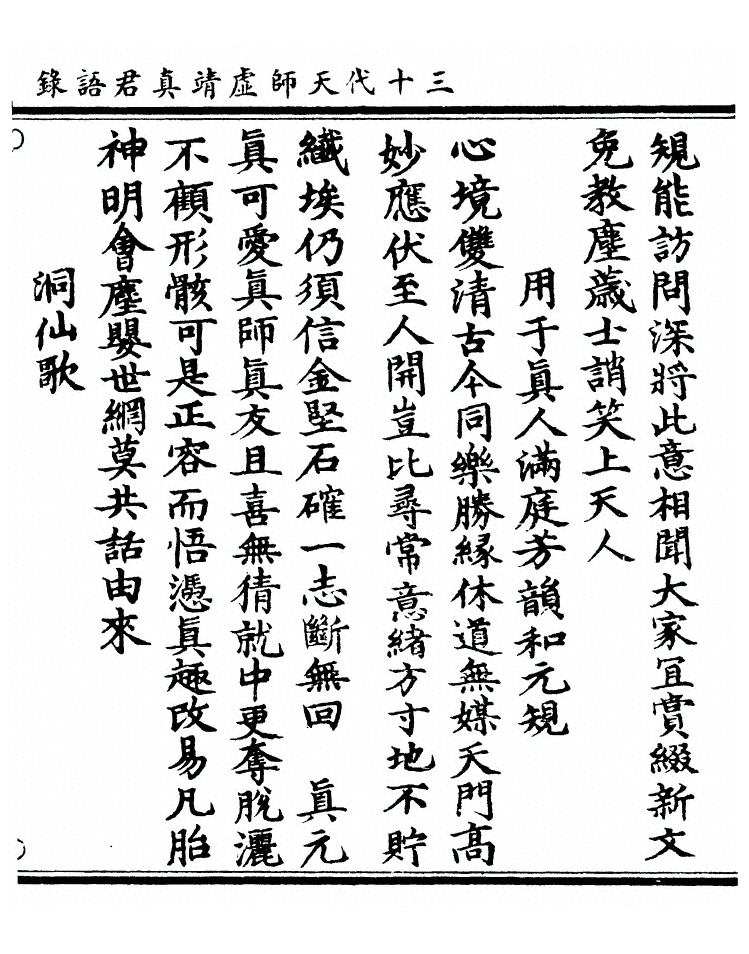 三十代天師虛靖真君語錄
規能訪問深將此意相聞大家宜賞綴新文
免教塵薉士誚笑上天人
用于眞人滿庭芳韻和元規
心境雙清古今同樂勝緣休道無媒天門高
妙應伏至人開豈比尋常意緒方寸地不貯
纖埃仍須信金堅石確一志斷無回 眞元
眞可愛眞師眞友且喜無猜就中更奪脫灑
不顧形骸可是正容而悟憑眞趣改易凡胎
神明會塵嬰世網莫共話由來
洞仙歌